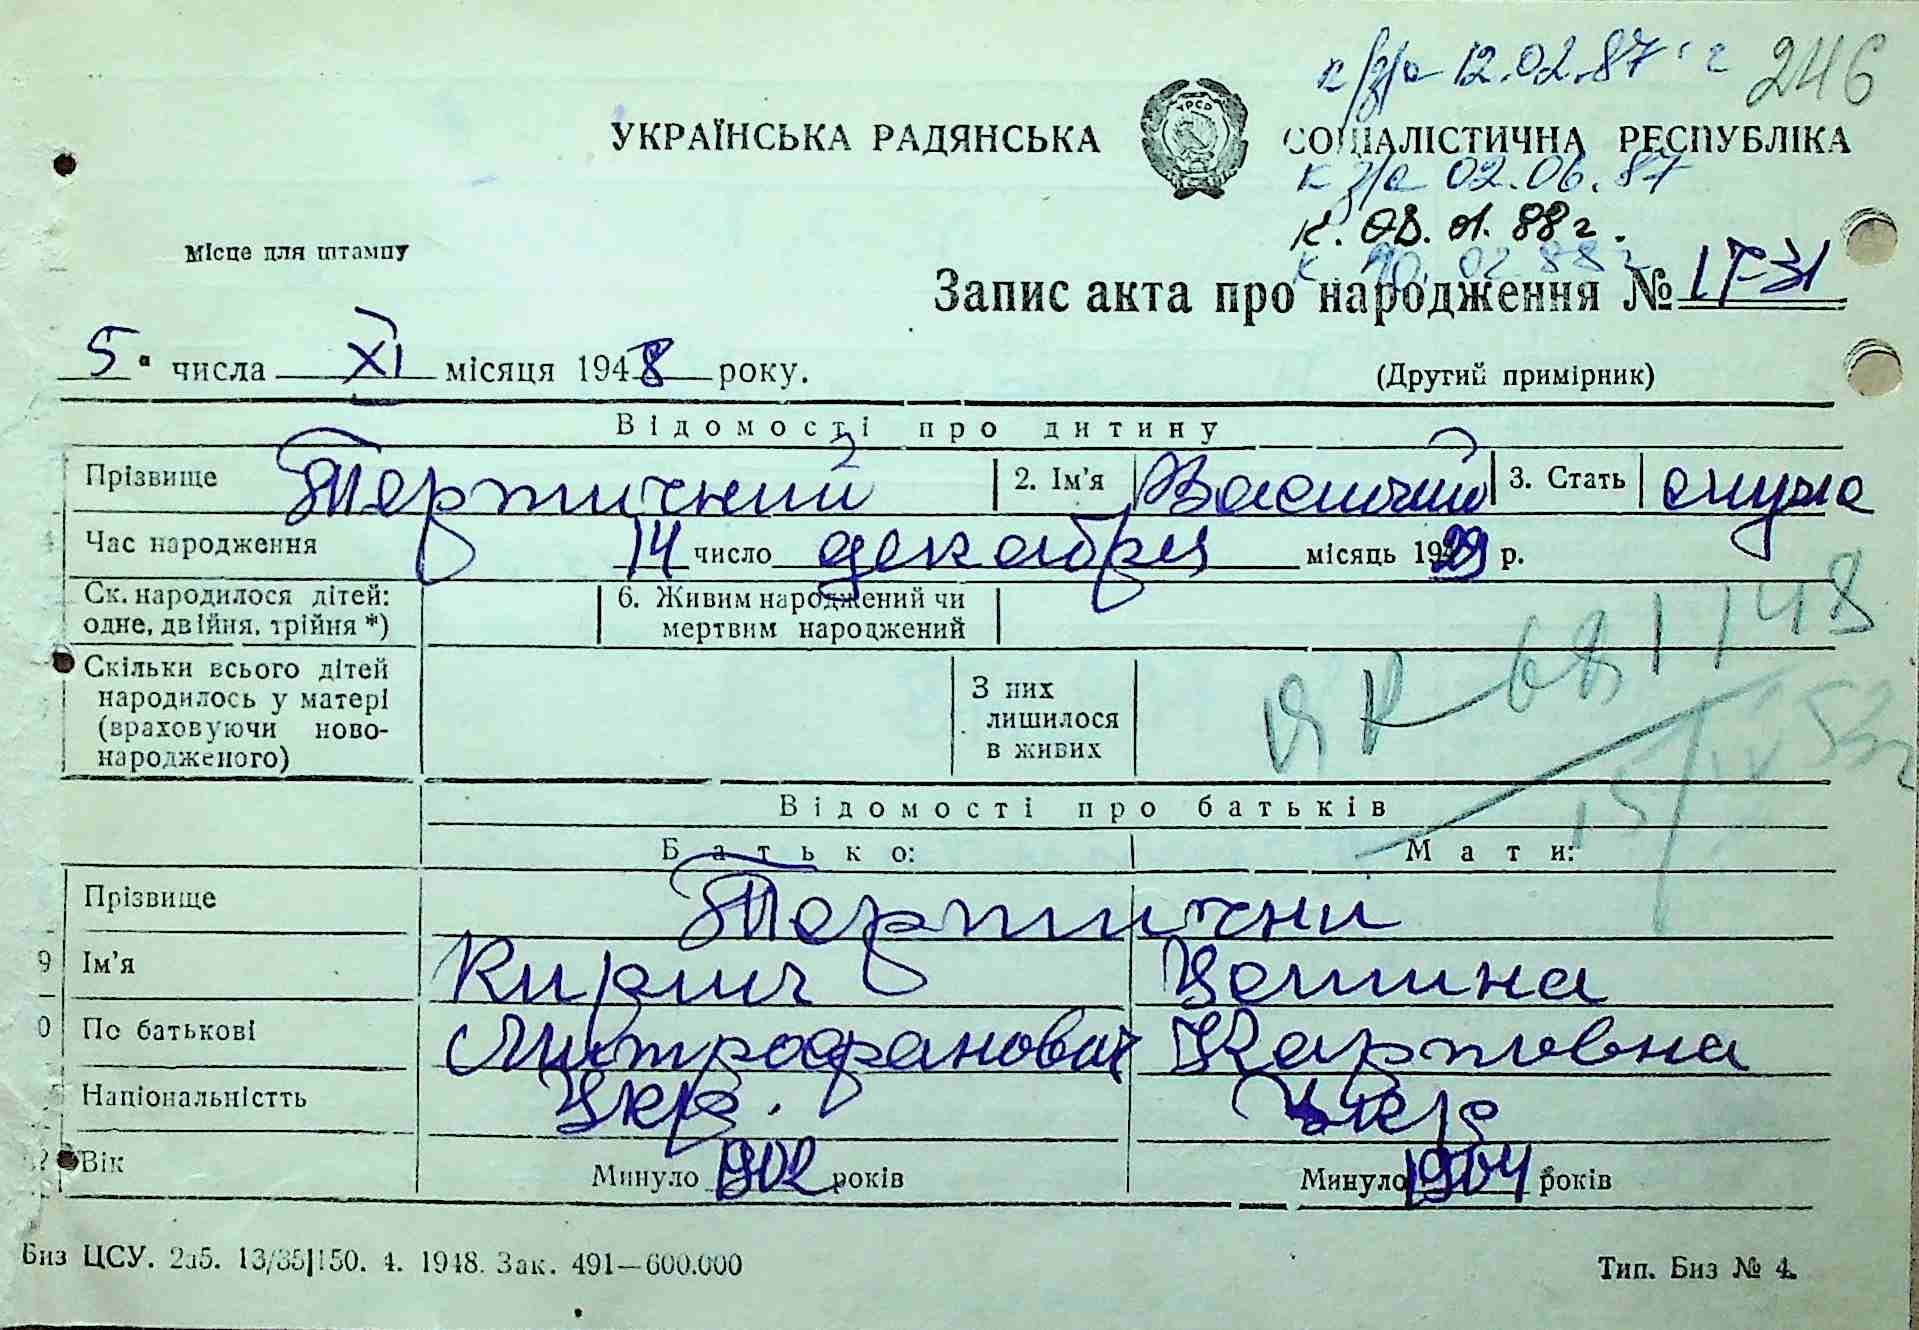 к/з/с 12.02.87 г 246
УКРАЇНСЬКА РАДЯНСЬКА УРСР СОЦІАЛІСТИЧНА РЕСПУБЛІКА
к з/с 02.06.87
Місце для штампу
к. 88 г.
к 02 88 г
Запис акта про народження № 1731
5 числа XI місяця 1948 року.
(Другий примірник)
Відомості про дитину
Прізвище Терпичний 2. Ім'я Василий 3. Стать
Час народження 14 число декабря місяць 1929 р.
Ск. народилося дітей: одне, двійня, трійня *)
6. Живим народжений чи мертвим народжений
Скільки всього дітей народилось у матері (враховуючи новонародженого)
З них лишилося в живих
ЯР 681148
15/IV
Відомості про батьків
Батько: Мати:
Прізвище Терпични
9 Ім'я Кирилл
0 По батькові Митрофанович Карповна
Національністть Укр. Укр
Вік Минуло 1902 років Минуло 1904 років
Биз ЦСУ. 2а5. 13/35|150. 4. 1948. Зак. 491—600.000 Тип. Биз № 4.